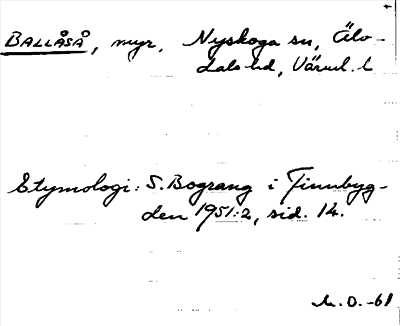 BALLÅSÅ, myr, Nyskoga sn, Älv-
dals hd, Värml. l
Etymologi: S. Bograng i Finnbyg-
den 1951:2, sid. 14.
M.O. -61